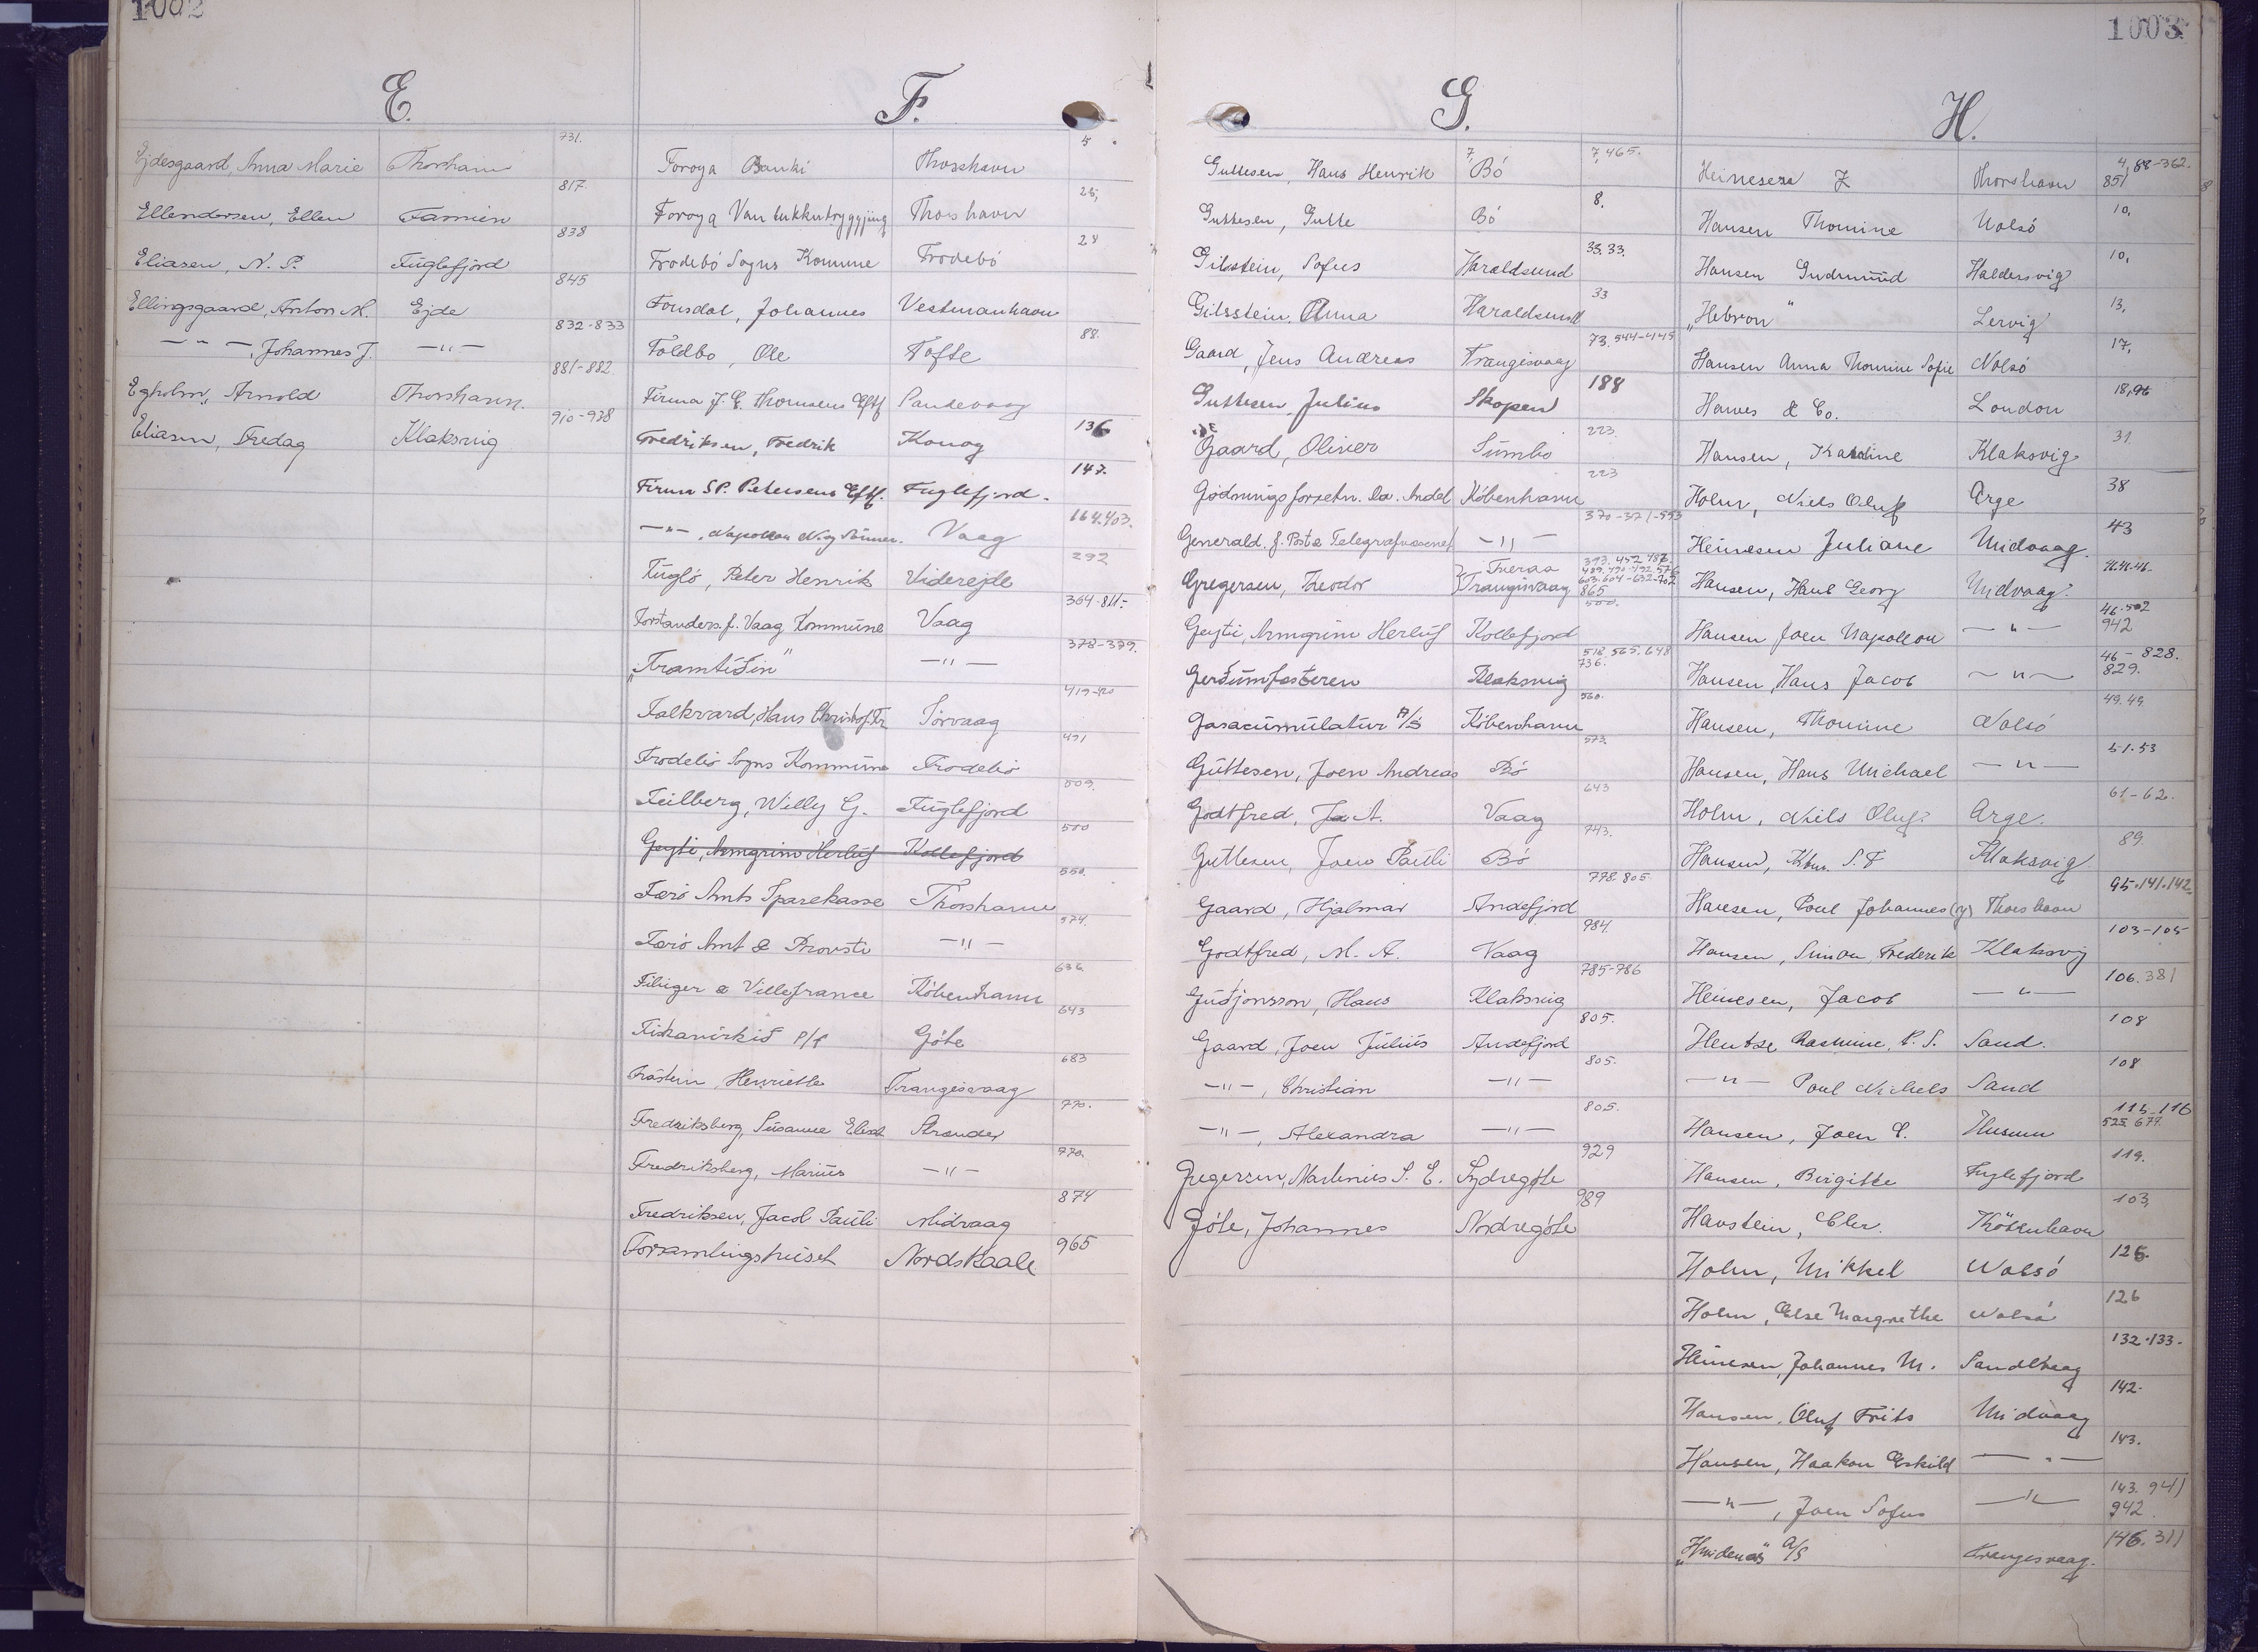 1002
E.
Ejdesgaard, Anna Marie Thorshavn 731.
Ellendersen, Ellen Famien 817.
Eliasen, N. P. Fuglefjord 838
Ellingsgaard, Anton M. Ejde 845
—"—, Johannes J. —"— 832-833
Egholm, Arnold Thorshavn. 881-882
Eliasen, Fredag Klaksvig 910-938
F.
Foroya Banki Thorshavn 5
Foroya Vanlukkutryggjing Thorshavn 25,
Frodebö Sogns Komune Frodebö 28
Fonsdal, Johannes Vestmanhavn
Foldbo, Ole Tofte 88.
Firma J. E. Thomsens Eftf Sandevaag
Fredriksen, Fredrik Konoy 136
Firma S.P. Petersens Eftf. Fuglefjord. 147.
—"—, Napoleon N. og Sönner. Vaag 164.403.
Fuglö, Peter Henrik Viderejde 292
Forstanders. f. Vaag Kommune Vaag 364-811-
"Framtiðin" —"— 378-379.
Falkvard, Hans Christof. Fr. Sörvaag 419-420
Frodebö Sogns Kommune Frodebö 491
Feilberg, Willy G. Fuglefjord 509.
Geyti, Armgrim Herluf Kollefjord 500
Færö Amts Sparekasse Thorshavn 550.
Færö Amt & Provsti —"— 574.
Fibiger & Villefrance Köbenhavn 636
Fiskavirkið P/f Göte 643
Fråstein, Henriette Trangisvaag 683
Fredriksberg, Susanne Elisab Strender 770.
Fredriksberg, Marius —"— 770.
Fredriksen, Jacob Pauli Midvaag 874
Forsamlingshuset Nordskaale 965
G.
Guttesen, Hans Henrik Bö 7, 7,465.
Guttesen, Gutte Bö 8.
Gilstein, Sofus Haraldsund 33.33.
Gilsstein, Anna Haraldsund 33
Gaard, Jens Andreas Trangisvaag 73.544-445
Guttesen, Julius Skopen 188
Gaard, Olivier Sumbo 223.
Gödningsforretn. Da. Andel Köbenhavn 223
Generald. f. Post & Telegrafvæsenet —"— 370-371-553
Gregersen, Teodor Tveraa Trangisvaag 393.452 487 489.490-492.576 603.604-632-702 865
Geyti, Armgrim Herluf Kollefjord 500.
Gerðumfosteren Klaksvig 518.565.648 736.
Gasacumulatur A/S Köbenhavn 560.
Guttesen, Joen Andreas Bö 573.
Godtfred, J. A. Vaag 643
Guttesen, Joen Pauli Bö 743.
Gaard, Hjalmar Andefjord 778.805.
Godtfred, M. A. Vaag 984.
Guðjonsson, Hans Klaksvig 785-786
Gaard, Joen Julius Andefjord 805.
—"—, Christian —"— 805.
—"—, Alexandra —"— 805.
Gregersen, Martinius S. E. Sydregöte 929
Göte, Johannes Nordregöte 989
1003
H.
Heinesen Z Thorshavn 4,88-362. 851
Hansen Thomine Nolsö 10,
Hansen Gudmund Haldersvig 10,
"Hebron" Lervig 13,
Hansen Anna Thomine Sofie Nolsö 17,
Hawes & Co. London 18,96
Hansen, Karoline Klaksvig 31.
Holm, Niels Oluf Arge 38
Heinesen Juliane Midvaag. 43
Hansen, Hans Georg Midvaag. 41.41.46-
Hansen Joen Napoleon —"— 46-502 942
Hansen, Hans Jacob —"— 46-828. 829.
Hansen, Thomine Nolsö 49.49.
Hansen, Hans Michael —"— 51.53
Holm, Niels Oluf. Arge. 61-62.
Hansen, Kbm. S. F Klaksvig 89.
Hansen, Poul Johannes Thorshavn 95.141.142.
Hansen, Simon Frederik Klaksvig 103-105
Heinesen, Jacob —"— 106.381
Hentze Rasmine, P. S. Sand. 108
—"— Poul Michels Sand 108
Hansen, Joen P. Husum 115-116 525.677.
Hansen, Birgitte Fuglefjord 119.
Havstein, Chr. Köbenhavn 103,
Holm, Mikkel Nolsö 126.
Holm, Else Margrethe Nolsö 126
Heinesen, Johannes M. Sandevaag 132.133.
Hansen, Oluf Frits Midvaag 142.
Hansen, Haakon Eskild —"— 143.
—"—, Joen Sofus —"— 143.941 942
"Hvidenæs" A/S Trangisvaag. 146.311